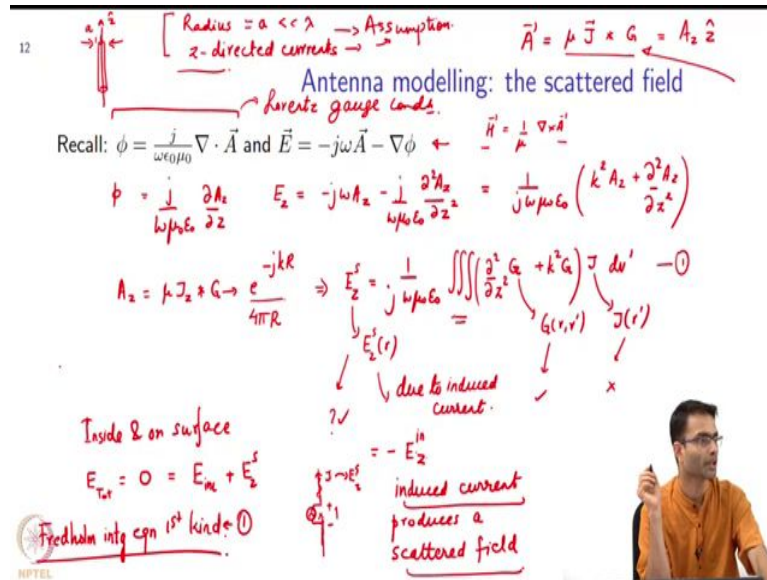 12
a ẑ
Radius = a << λ → Assumption.
z-directed currents →
A⃗ = μ J⃗ * G = A_z ẑ
Antenna modelling: the scattered field
Lorentz gauge condn.
Recall: ϕ = j/(ωϵ₀μ₀) ∇ · A⃗ and E⃗ = −jωA⃗ − ∇ϕ ← H⃗ = 1/μ ∇×A⃗
ϕ = j/(ωμ₀ε₀) ∂A_z/∂z E_z = −jωA_z − j/(ωμ₀ε₀) ∂²A_z/∂z² = 1/(jωμ₀ε₀) (k²A_z + ∂²A_z/∂z²)
A_z = μ J_z * G → e^(−jkR)/(4πR) ⇒ E_z^s = 1/(jωμ₀ε₀) ∭(∂²/∂z² G + k²G) J dv' — ①
E_z^s(r) G(r,r') J(r')
due to induced current.
?✓ ✓ x
Inside & on surface
= − E_z^in
E_Tot = 0 = E_inc + E_z^s
J→E_z^s
+ 1 −
induced current
produces a
scattered field
Fredholm intg eqn 1st kind ← ①
NPTEL